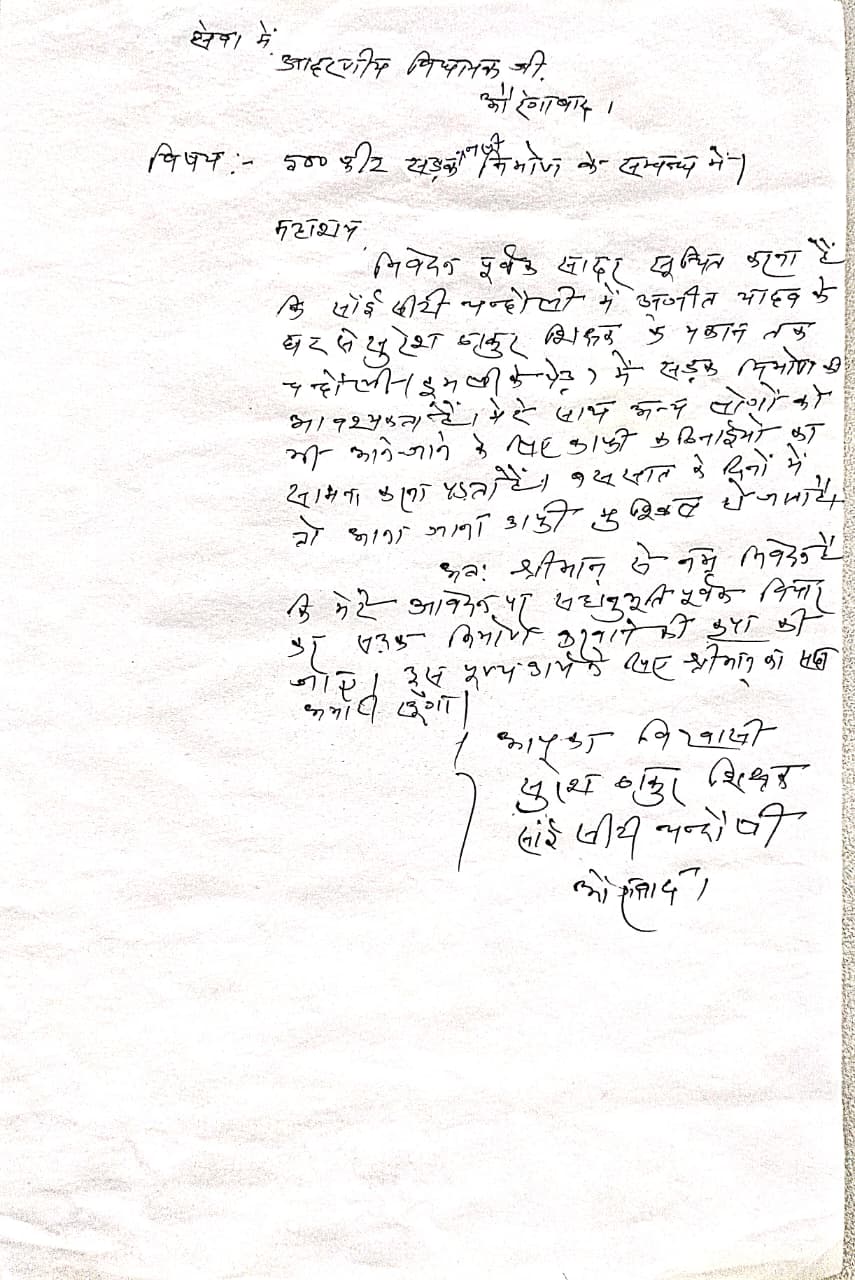 सेवा में,
आदरणीय विधायक जी,
औरंगाबाद।
विषय :- 500 फीट सड़क निर्माण के सम्बन्ध में।
महाशय,
निवेदन पूर्वक सादर सूचित करना है
कि साँई सीटी चन्दौली में अजीत यादव के
घर से सुरेश ठाकुर शिक्षक के मकान तक
चन्दौली (इमली के पेड़) में सड़क निर्माण की
आवश्यकता हैं। मेरे साथ अन्य लोगों को
भी आने-जाने के लिए काफी कठिनाईयों का
सामना करना पड़ता हैं। बरसात के दिनों में
तो आना जाना काफी मुश्किल हो जाता है।
अतः श्रीमान् से नम्र निवेदन हैं
कि मेरे आवेदन पर सहानुभूति पूर्वक विचार
कर सड़क निर्माण करवाने की कृपा की
जाए। इस पूण्य कार्य के लिए श्रीमान् का सदा
आभारी रहूँगा।
आपका विश्वासी
सुरेश ठाकुर शिक्षक
साँई सीटी चन्दौली
औरंगाबाद।